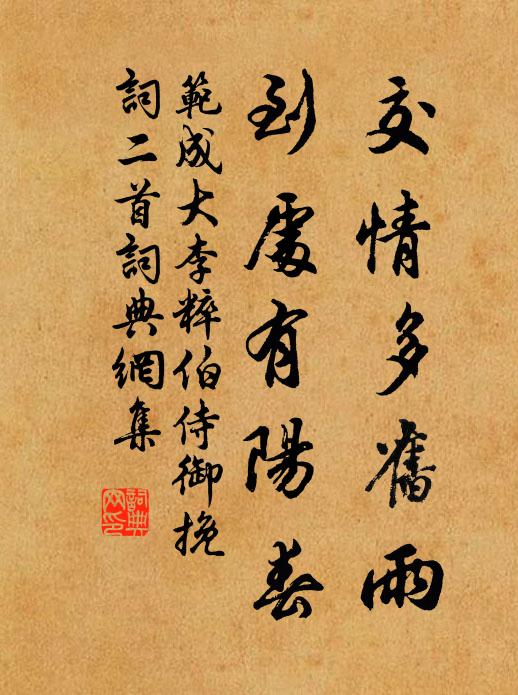 交情多舊雨
到處有陽春
範成大李粹伯侍御挽
詞二首詞典網集
詞典
网印